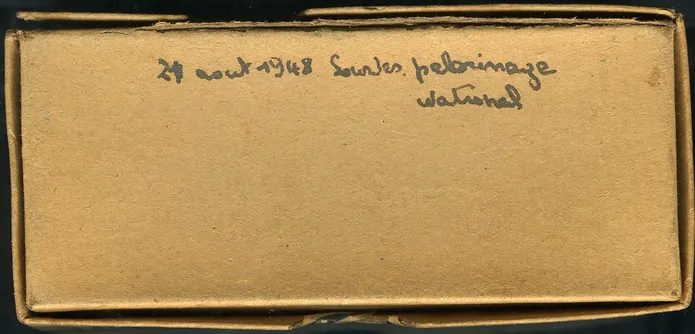 21 aout 1948 Lourdes. pelerinage
national